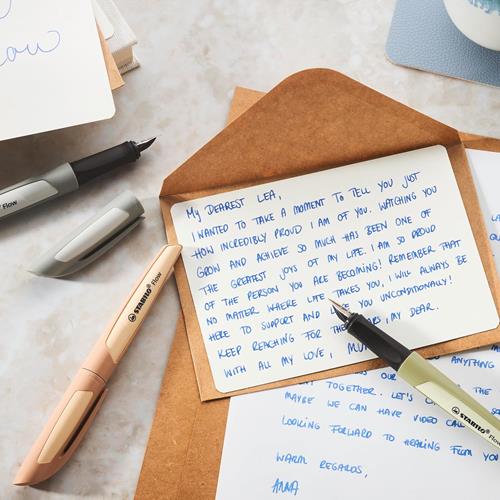 Flow
STABILO Flow
MY DEAREST LEA,
I WANTED TO TAKE A MOMENT TO TELL YOU JUST
HOW INCREDIBLY PROUD I AM OF YOU. WATCHING YOU
GROW AND ACHIEVE SO MUCH HAS BEEN ONE OF
THE GREATEST JOYS OF MY LIFE. I AM SO PROUD
OF THE PERSON YOU ARE BECOMING! REMEMBER THAT
NO MATTER WHERE LIFE TAKES YOU, I WILL ALWAYS BE
HERE TO SUPPORT AND YOU UNCONDITIONALLY!
KEEP REACHING FOR MY DEAR.
WITH ALL MY LOVE,
ANYTHING
TOGETHER. LET'S THE
MAYBE WE CAN HAVE VIDEO
LOOKING FORWARD TO HEARING FROM YOU
WARM REGARDS,
ANNA
STABILO Flow